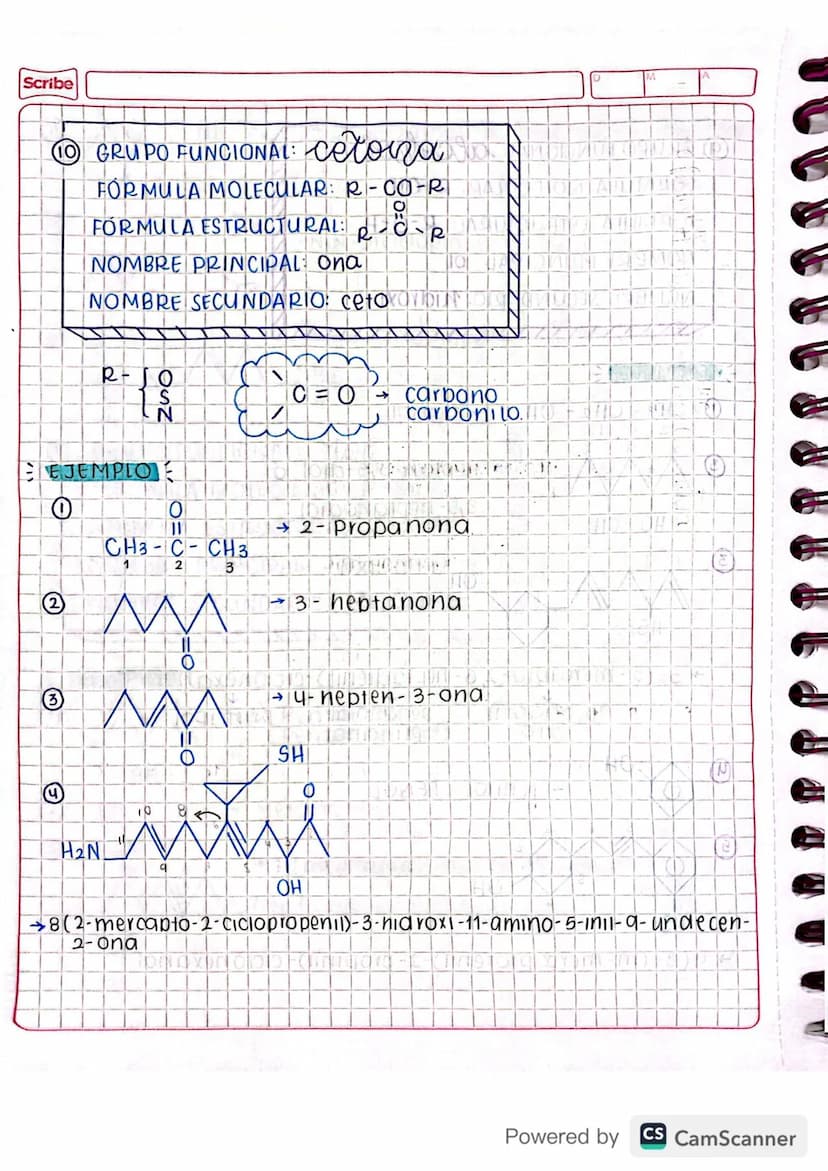 Scribe
D M A
10 GRUPO FUNCIONAL: cetona
FÓRMULA MOLECULAR: R - CO - R
O
FÓRMULA ESTRUCTURAL: R - C - R
NOMBRE PRINCIPAL: ona
NOMBRE SECUNDARIO: ceto
R - { O
S
N
C = O → carbono
carbonilo.
EJEMPLO
1
O
CH3 - C - CH3 → 2- Propanona
1 2 3
2 → 3- heptanona
O
3 → 4-hepten-3-ona
O
SH
4
O
10 8
H2N 11
9
OH
→ 8(2-mercapto-2-ciclopropenil)-3-hidroxi-11-amino-5-inil-9-undecen-
2-ona
Powered by CS CamScanner